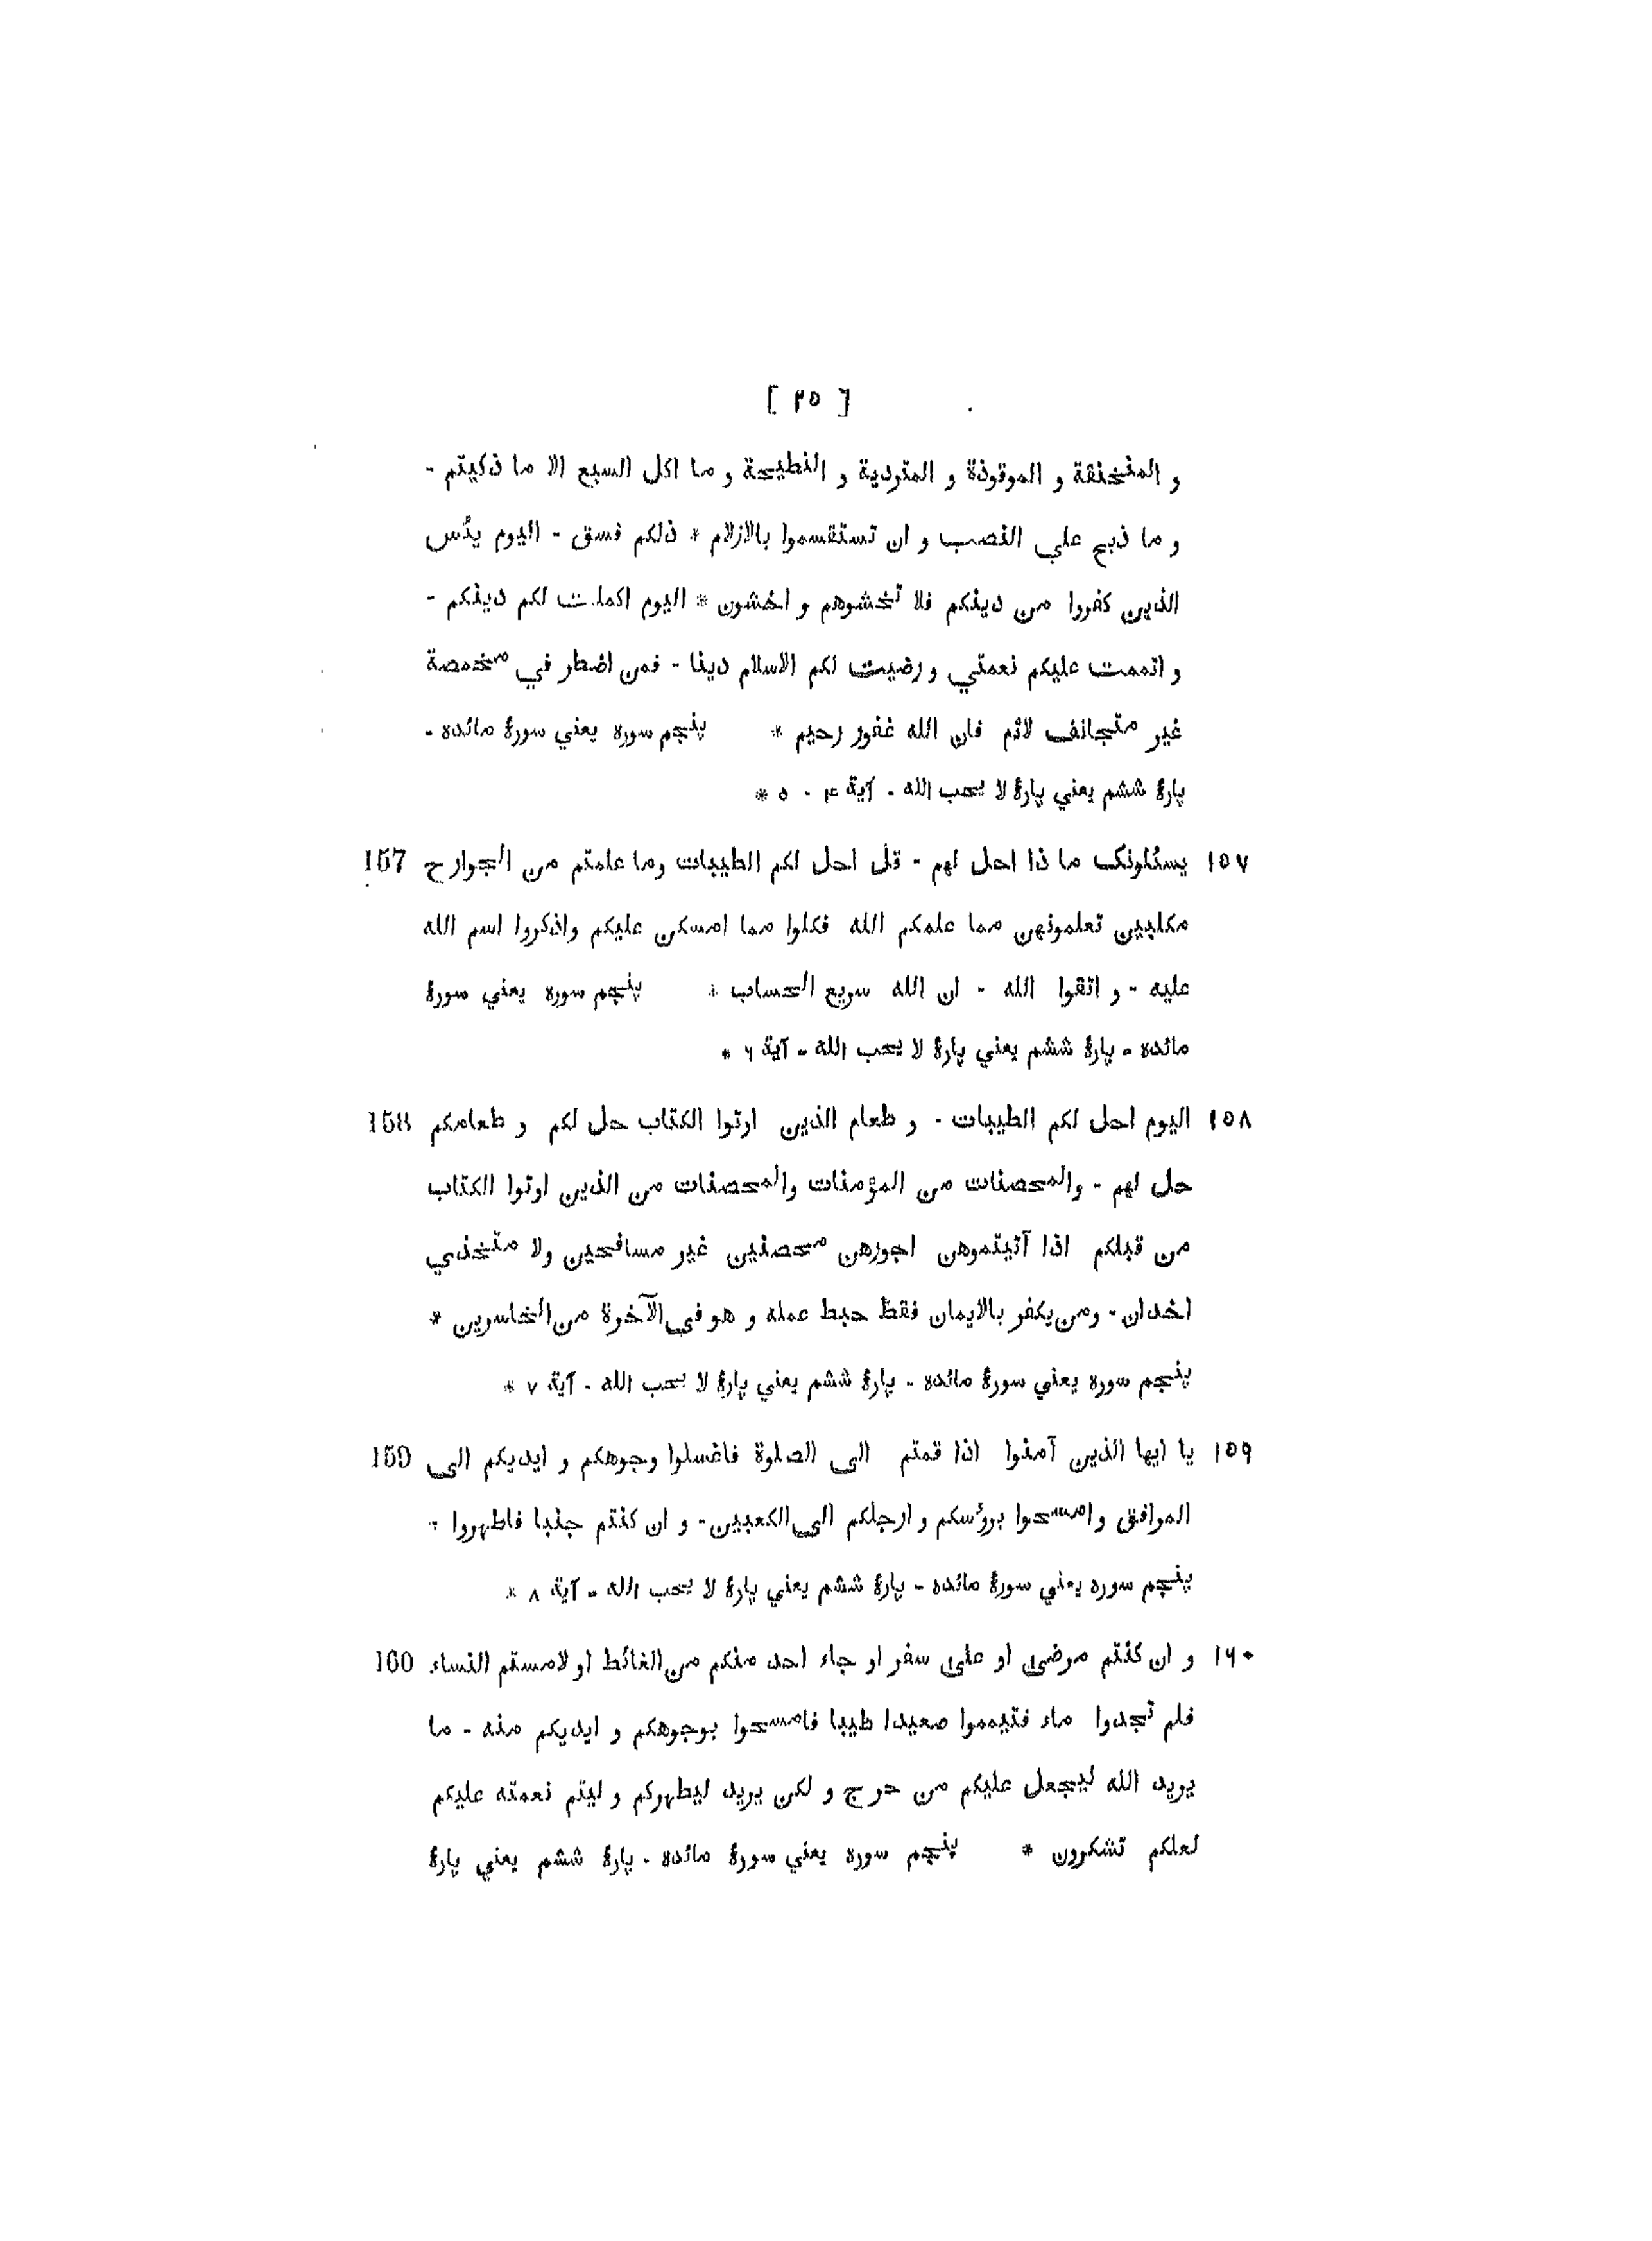 [ ٣٥ ]
و المنخنقة و الموقوذة و المتردية و النطيحة و ما اكل السبع الا ما ذكيتم -
و ما ذبح علي النصب و ان تستقسموا بالازلام * ذلكم فسق - اليوم يئس
الذين كفروا من دينكم فلا تخشوهم و اخشون * اليوم اكملت لكم دينكم -
و اتممت عليكم نعمتي و رضيت لكم الاسلام دينا - فمن اضطر في مخمصة
غير متجانف لاثم فان الله غفور رحيم * پنجم سوره يعني سورۀ مائده -
پارۀ ششم يعني پارۀ لا يحب الله - آية ۴ - ٥ *
١٥٧ يسئلونك ما ذا احل لهم - قل احل لكم الطيبات وما علمتم من الجوارح 157
مكلبين تعلمونهن مما علمكم الله فكلوا مما امسكن عليكم واذكروا اسم الله
عليه - و اتقوا الله - ان الله سريع الحساب * پنجم سوره يعني سورۀ
مائده - پارۀ ششم يعني پارۀ لا يحب الله - آية ٦ *
١٥٨ اليوم احل لكم الطيبات - و طعام الذين اوتوا الكتاب حل لكم و طعامكم 158
حل لهم - والمحصنات من المؤمنات والمحصنات من الذين اوتوا الكتاب
من قبلكم اذا آتيتموهن اجورهن محصنين غير مسافحين ولا متخذي
اخدان - ومن يكفر بالايمان فقط حبط عمله و هو فى الآخرة من الخاسرين *
پنجم سوره يعني سورۀ مائده - پارۀ ششم يعني پارۀ لا يحب الله - آية ٧ *
١٥٩ يا ايها الذين آمنوا اذا قمتم الى الصلوة فاغسلوا وجوهكم و ايديكم الى 159
المرافق و امسحوا برؤسكم و ارجلكم الى الكعبين - و ان كنتم جنبا فاطهروا *
پنجم سوره يعني سورۀ مائده - پارۀ ششم يعني پارۀ لا يحب الله - آية ٨ *
١٦٠ و ان كنتم مرضى او على سفر او جاء احد منكم من الغائط او لامستم النساء 160
فلم تجدوا ماء فتيمموا صعيدا طيبا فامسحوا بوجوهكم و ايديكم منه - ما
يريد الله ليجعل عليكم من حرج و لكن يريد ليطهركم و ليتم نعمته عليكم
لعلكم تشكرون * پنجم سوره يعني سورۀ مائده - پارۀ ششم يعني پارۀ